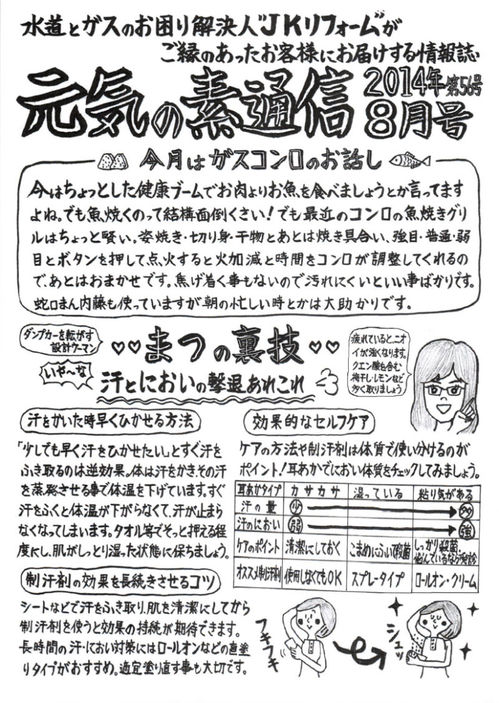 水道とガスのお困り解決人"JKリフォーム"が
ご縁のあったお客様にお届けする情報誌
元気の素通信
2014年 第56号
8月号
今月はガスコンロのお話し
今はちょっとした健康ブームでお肉よりお魚を食べましょうとか言ってます
よね。でも魚焼くのって結構面倒くさい!でも最近のコンロの魚焼きグリ
ルはちょっと賢い。姿焼き・切り身・干物とあとは焼き具合い、強目・普通・弱
目とボタンを押して点火すると火加減と時間をコンロが調整してくれるの
で、あとはおまかせです。焦げ着く事もないので汚れにくいといい事ばかりです。
蛇口まん内藤も使っていますが朝の忙しい時とかは大助かりです。
ダンプカーを転がす
設計ウーマン
いや〜な
♡♡まつの裏技♡♡
汗とにおいの撃退あれこれ
疲れていると、ニオ
イが強くなります。
クエン酸を含む
梅干し・レモンなど
多く取りましょう
汗をかいた時早くひかせる方法
「少しでも早く汗をひかせたい。」とすぐ汗を
ふき取るのは逆効果。体は汗をかきその汗
を蒸発させる事で体温を下げています。すぐ
汗をふくと体温が下がらなくて、汗が止まら
なくなってしまいます。タオル等でそっと押える程
度にし、肌がしっとり湿った状態に保ちましょう。
制汗剤の効果を長続きさせるコツ
シートなどで汗をふき取り、肌を清潔にしてから
制汗剤を使うと効果の持続が期待できます。
長時間の汗・におい対策にはロールオンなどの直塗
りタイプがおすすめ。適宜塗り直す事も大切です。
効果的なセルフケア
ケアの方法や制汗剤は体質で使い分けるのが
ポイント!耳あかでにおい体質をチェックしてみましょう。
耳あかタイプ カサカサ 湿っている 粘り気がある
汗の量 少 多
汗のにおい 弱 強
ケアのポイント 清潔にしておく こまめにふいて殺菌 しっかり殺菌。悩んでいるなら受診
オススメ制汗剤 使用しなくてもOK スプレータイプ ロールオン・クリーム
フキフキ
シュッ